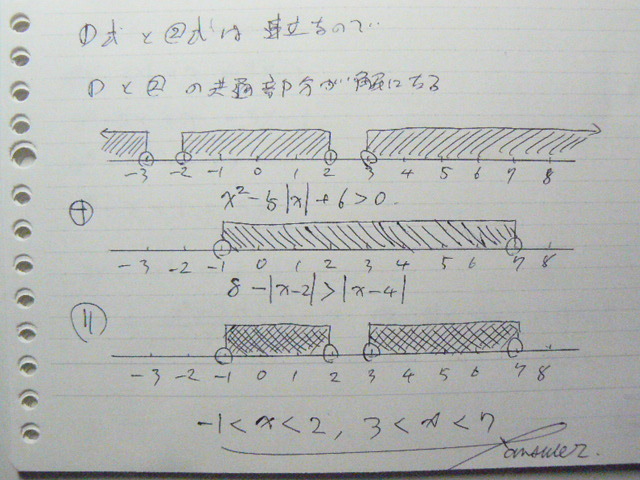 ①式と②式は連立なので‥
①と②の共通部分が解になる
-3 -2 -1 0 1 2 3 4 5 6 7 8
x²-5|x|+6>0.
+
-3 -2 -1 0 1 2 3 4 5 6 7 8
8-|x-2|>|x-4|
||
-3 -2 -1 0 1 2 3 4 5 6 7 8
-1<x<2, 3<x<7
answer.